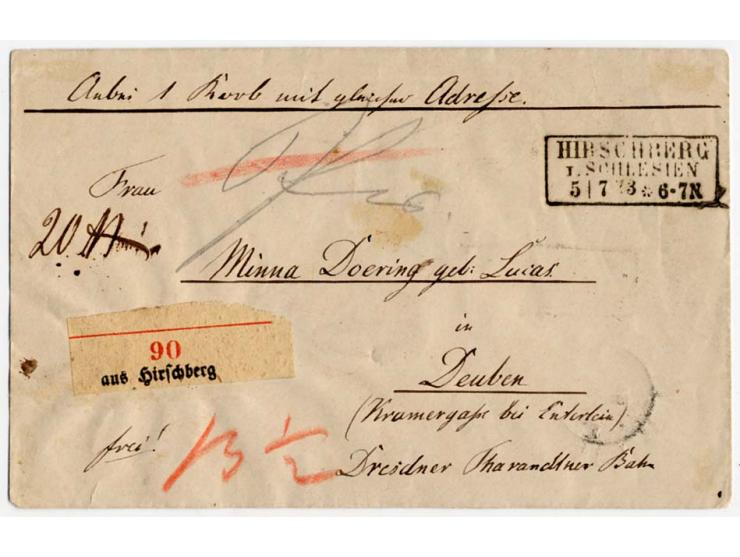 Anbei 1 Korb mit gleicher Adresse.
HIRSCHBERG
I. SCHLESIEN
5 | 7 73 * 6-7N
Frau
20
Minna Doering geb: Lucas
in
Deuben
90
aus Hirschberg
(Kramergaße bei Enterlein)
frei!
13 1/2
Dresdner Tharandtner Bahn